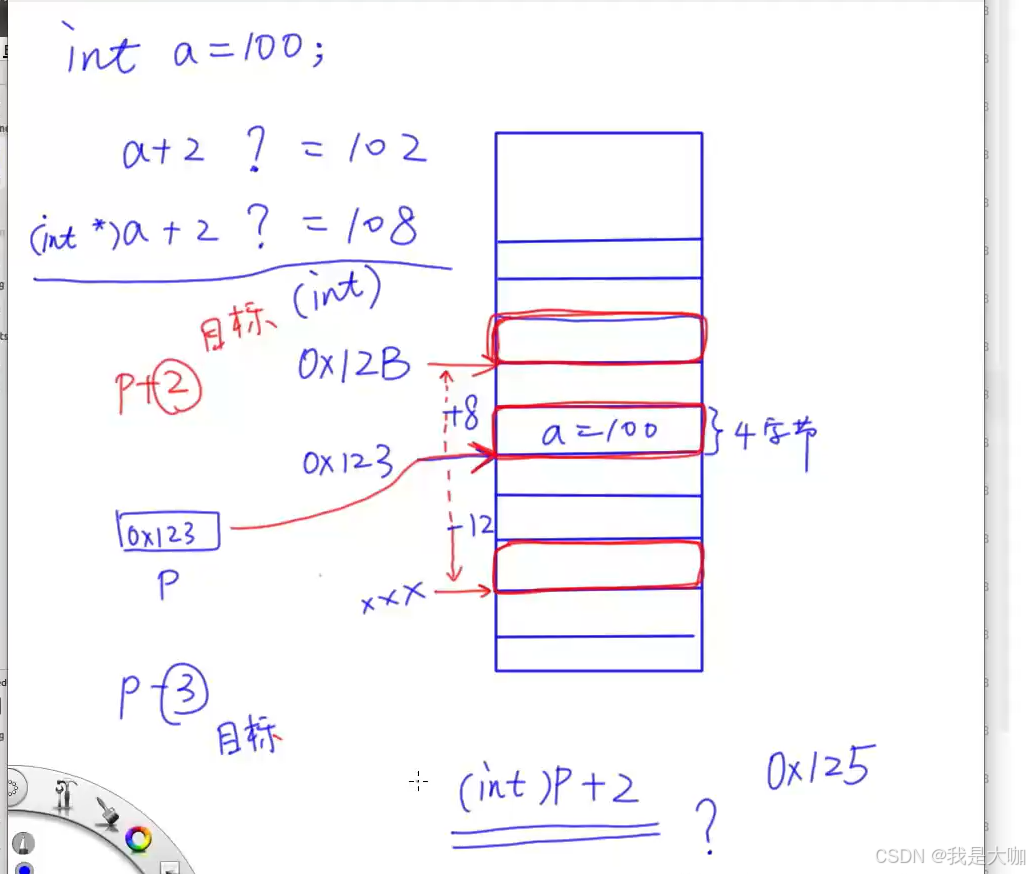 int a=100;
a+2 ? = 102
(int *)a+2 ? = 108
目标 (int)
P+2
0x12B
+8
a=100
4字节
0x123
0x123
P
-12
xxx
P-3
目标
(int)P+2 ?
0x125
CSDN @我是大咖